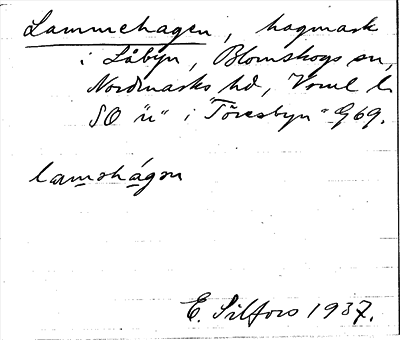 Lammehagen, hagmark
i Låbyn, Blomskogs sn,
Nordmarks hd, Vrml l.
SO "n" i "Töresbyn" G69.
lamshágen
E. Silfors 1937.